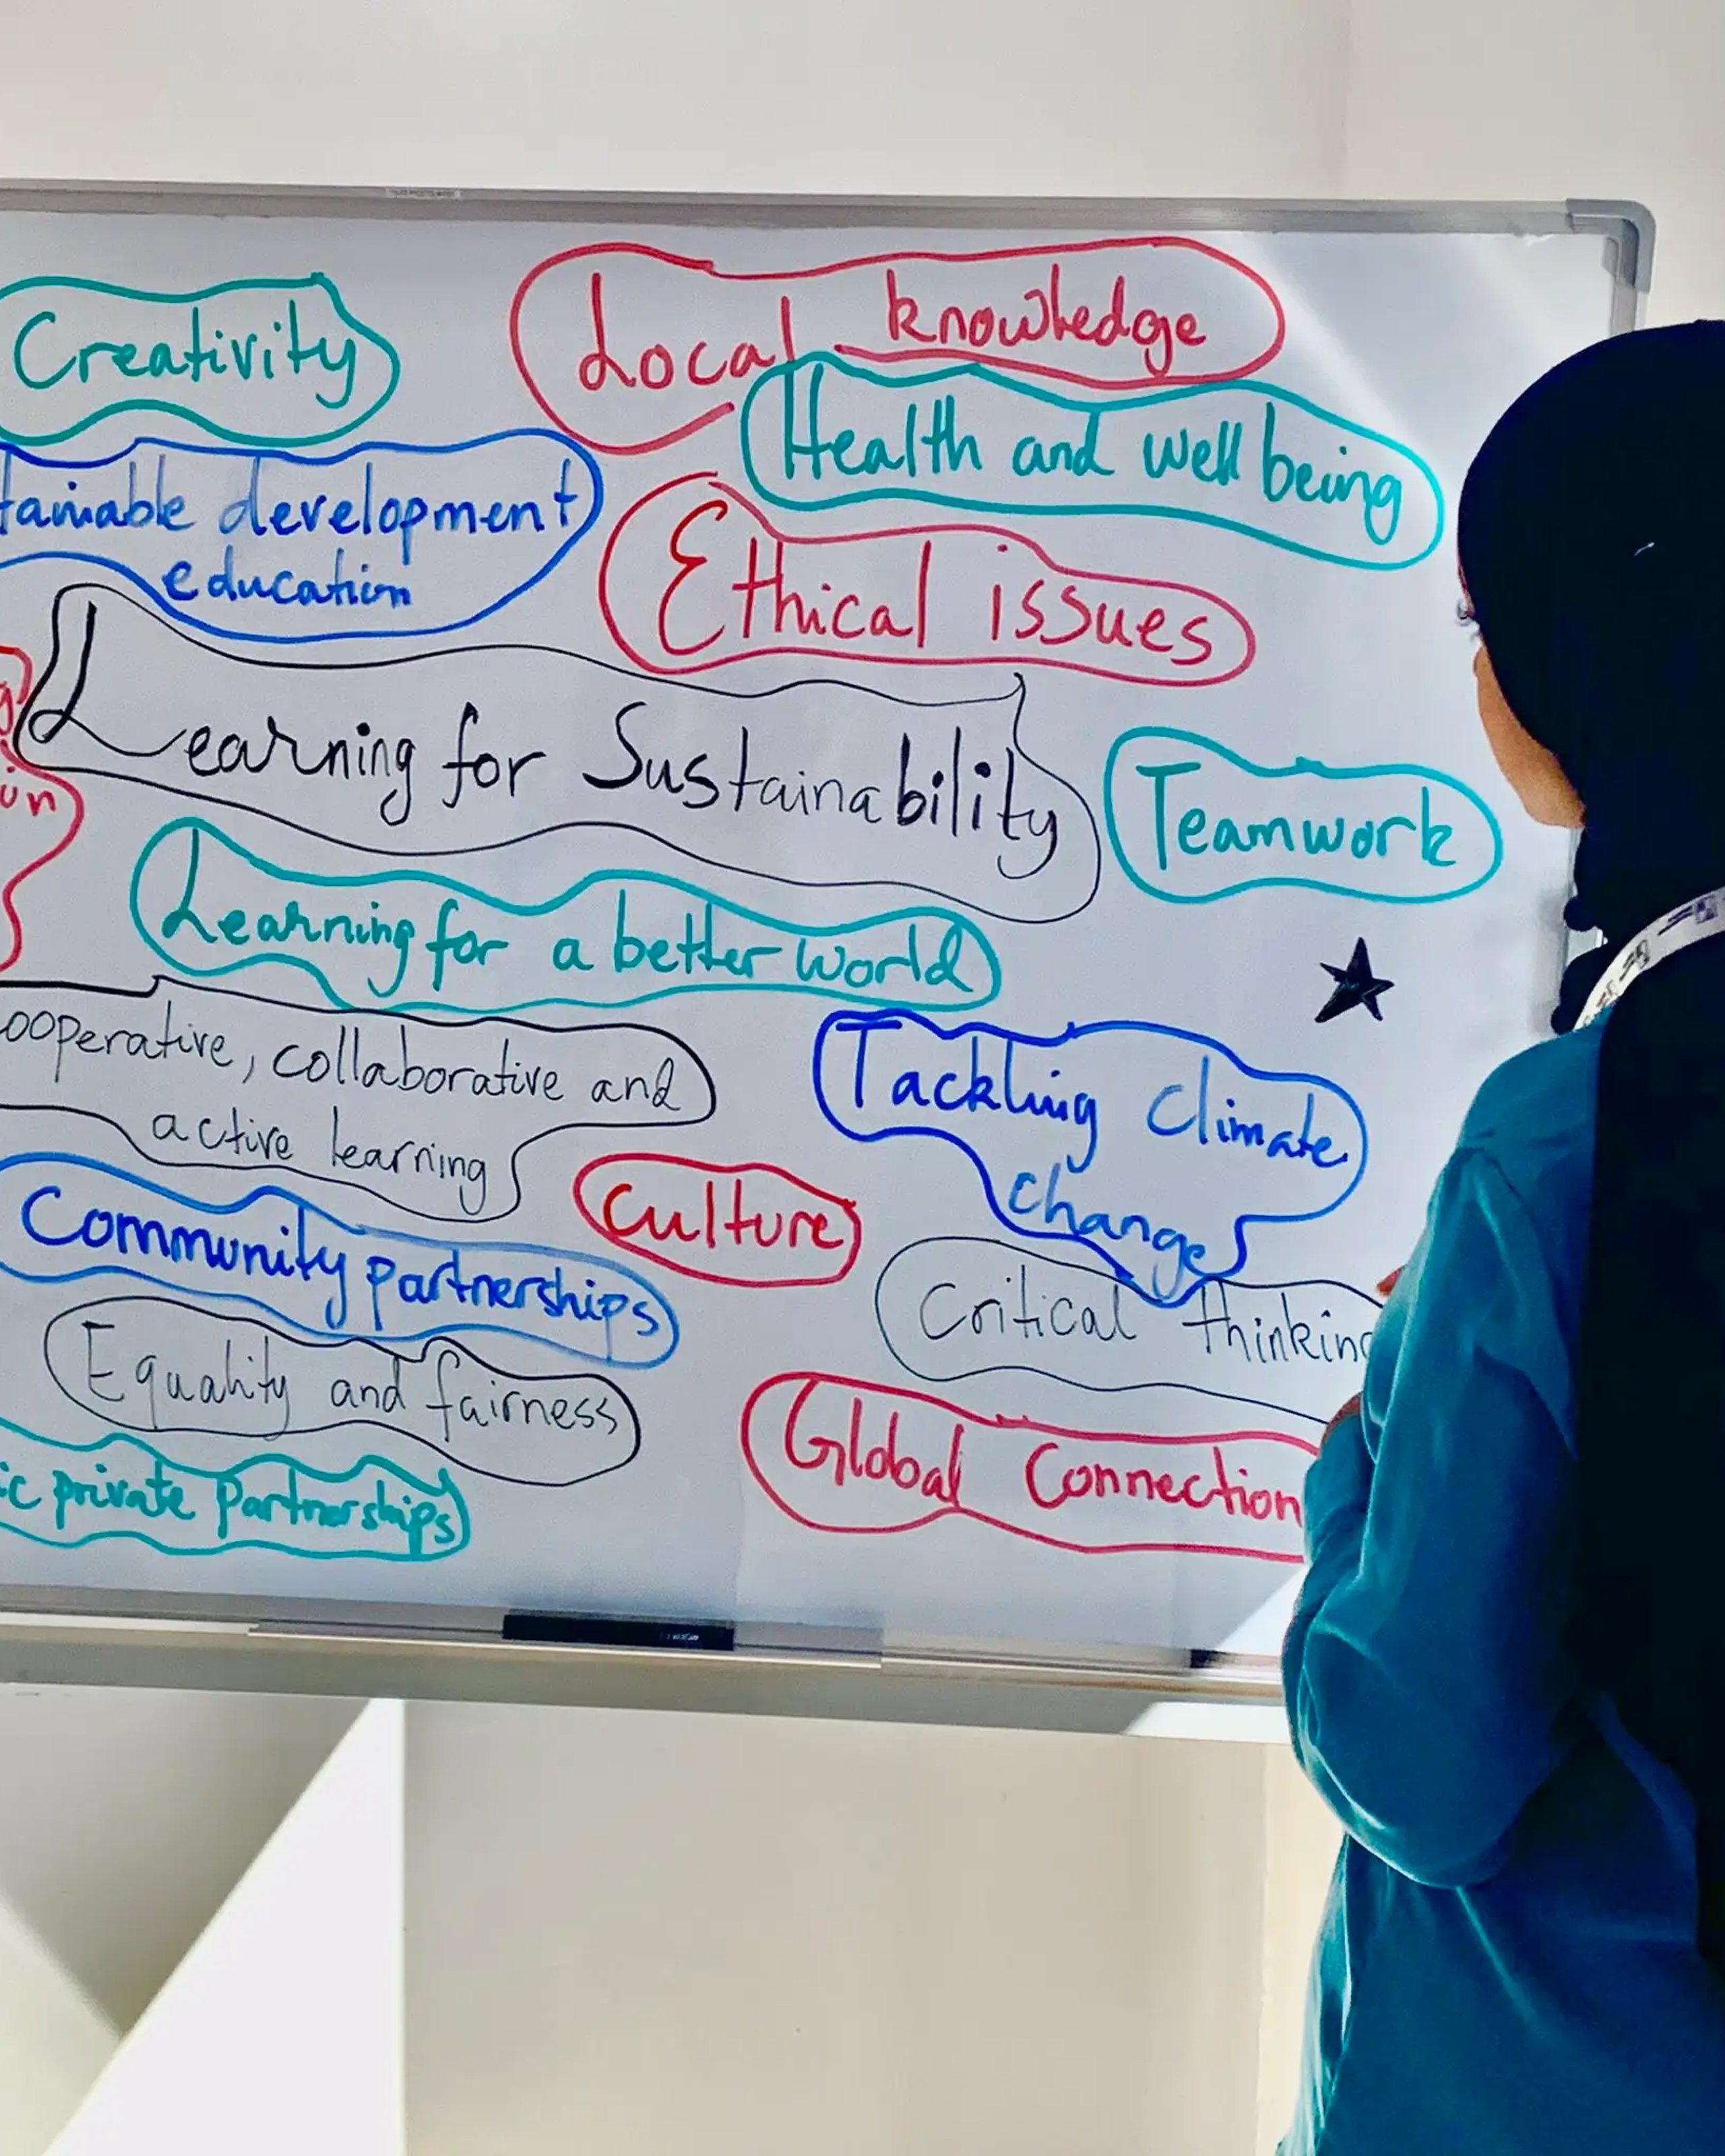 Creativity
Local knowledge
Health and well being
tainable development
education
Ethical issues
Learning for Sustainability
Teamwork
Learning for a better world
ooperative, collaborative and
active learning
Tackling climate
change
Community partnerships
Culture
Critical thinking
Equality and fairness
Global Connection
ic private partnerships